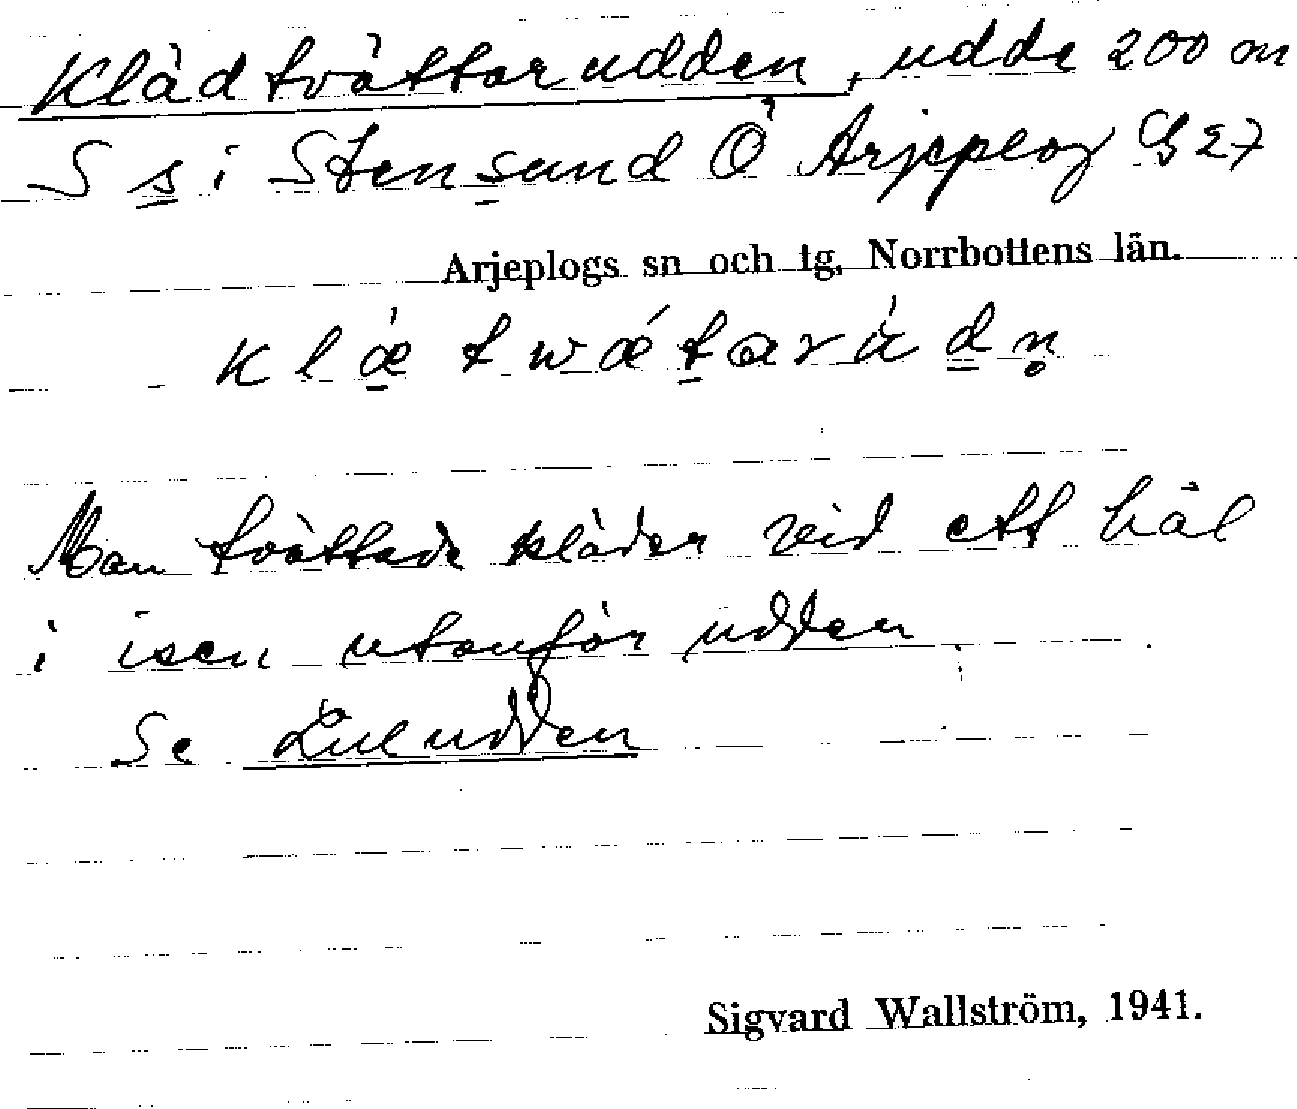 Klädtvättarudden, udde 200 m
S s i Stensund Ö Arjeplog G 27
Arjeplogs sn och tg, Norrbottens län.
klæ̀twǽtaràdn̥
Man tvättade kläder vid ett hål
i isen utanför udden
Se Luludden
Sigvard Wallström, 1941.